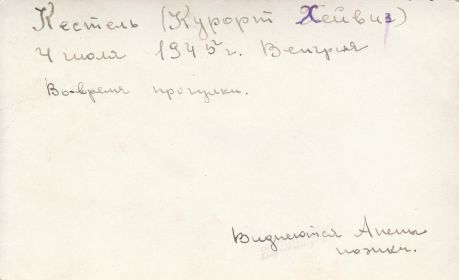 Кестель (Курорт Хейвиз)
4 июля 1945 г. Венгрия
Во время прогулки.
Виднеются Анены
ножки.